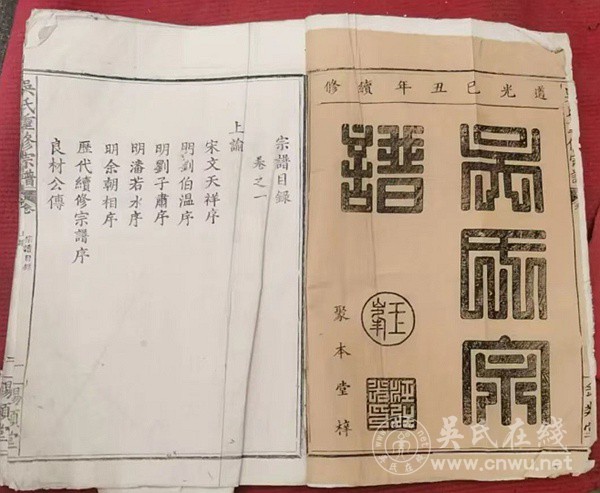 道光己丑年續修
吳氏宗
譜
聚本堂梓
宗譜目錄
卷之一
上諭
宋文天祥序
明劉伯温序
明劉子肅序
明潘若水序
明余朝相序
歷代續修宗譜序
良村公傳
吳氏重修宗譜
宗譜目錄
吴氏在线
www.cnwu.net